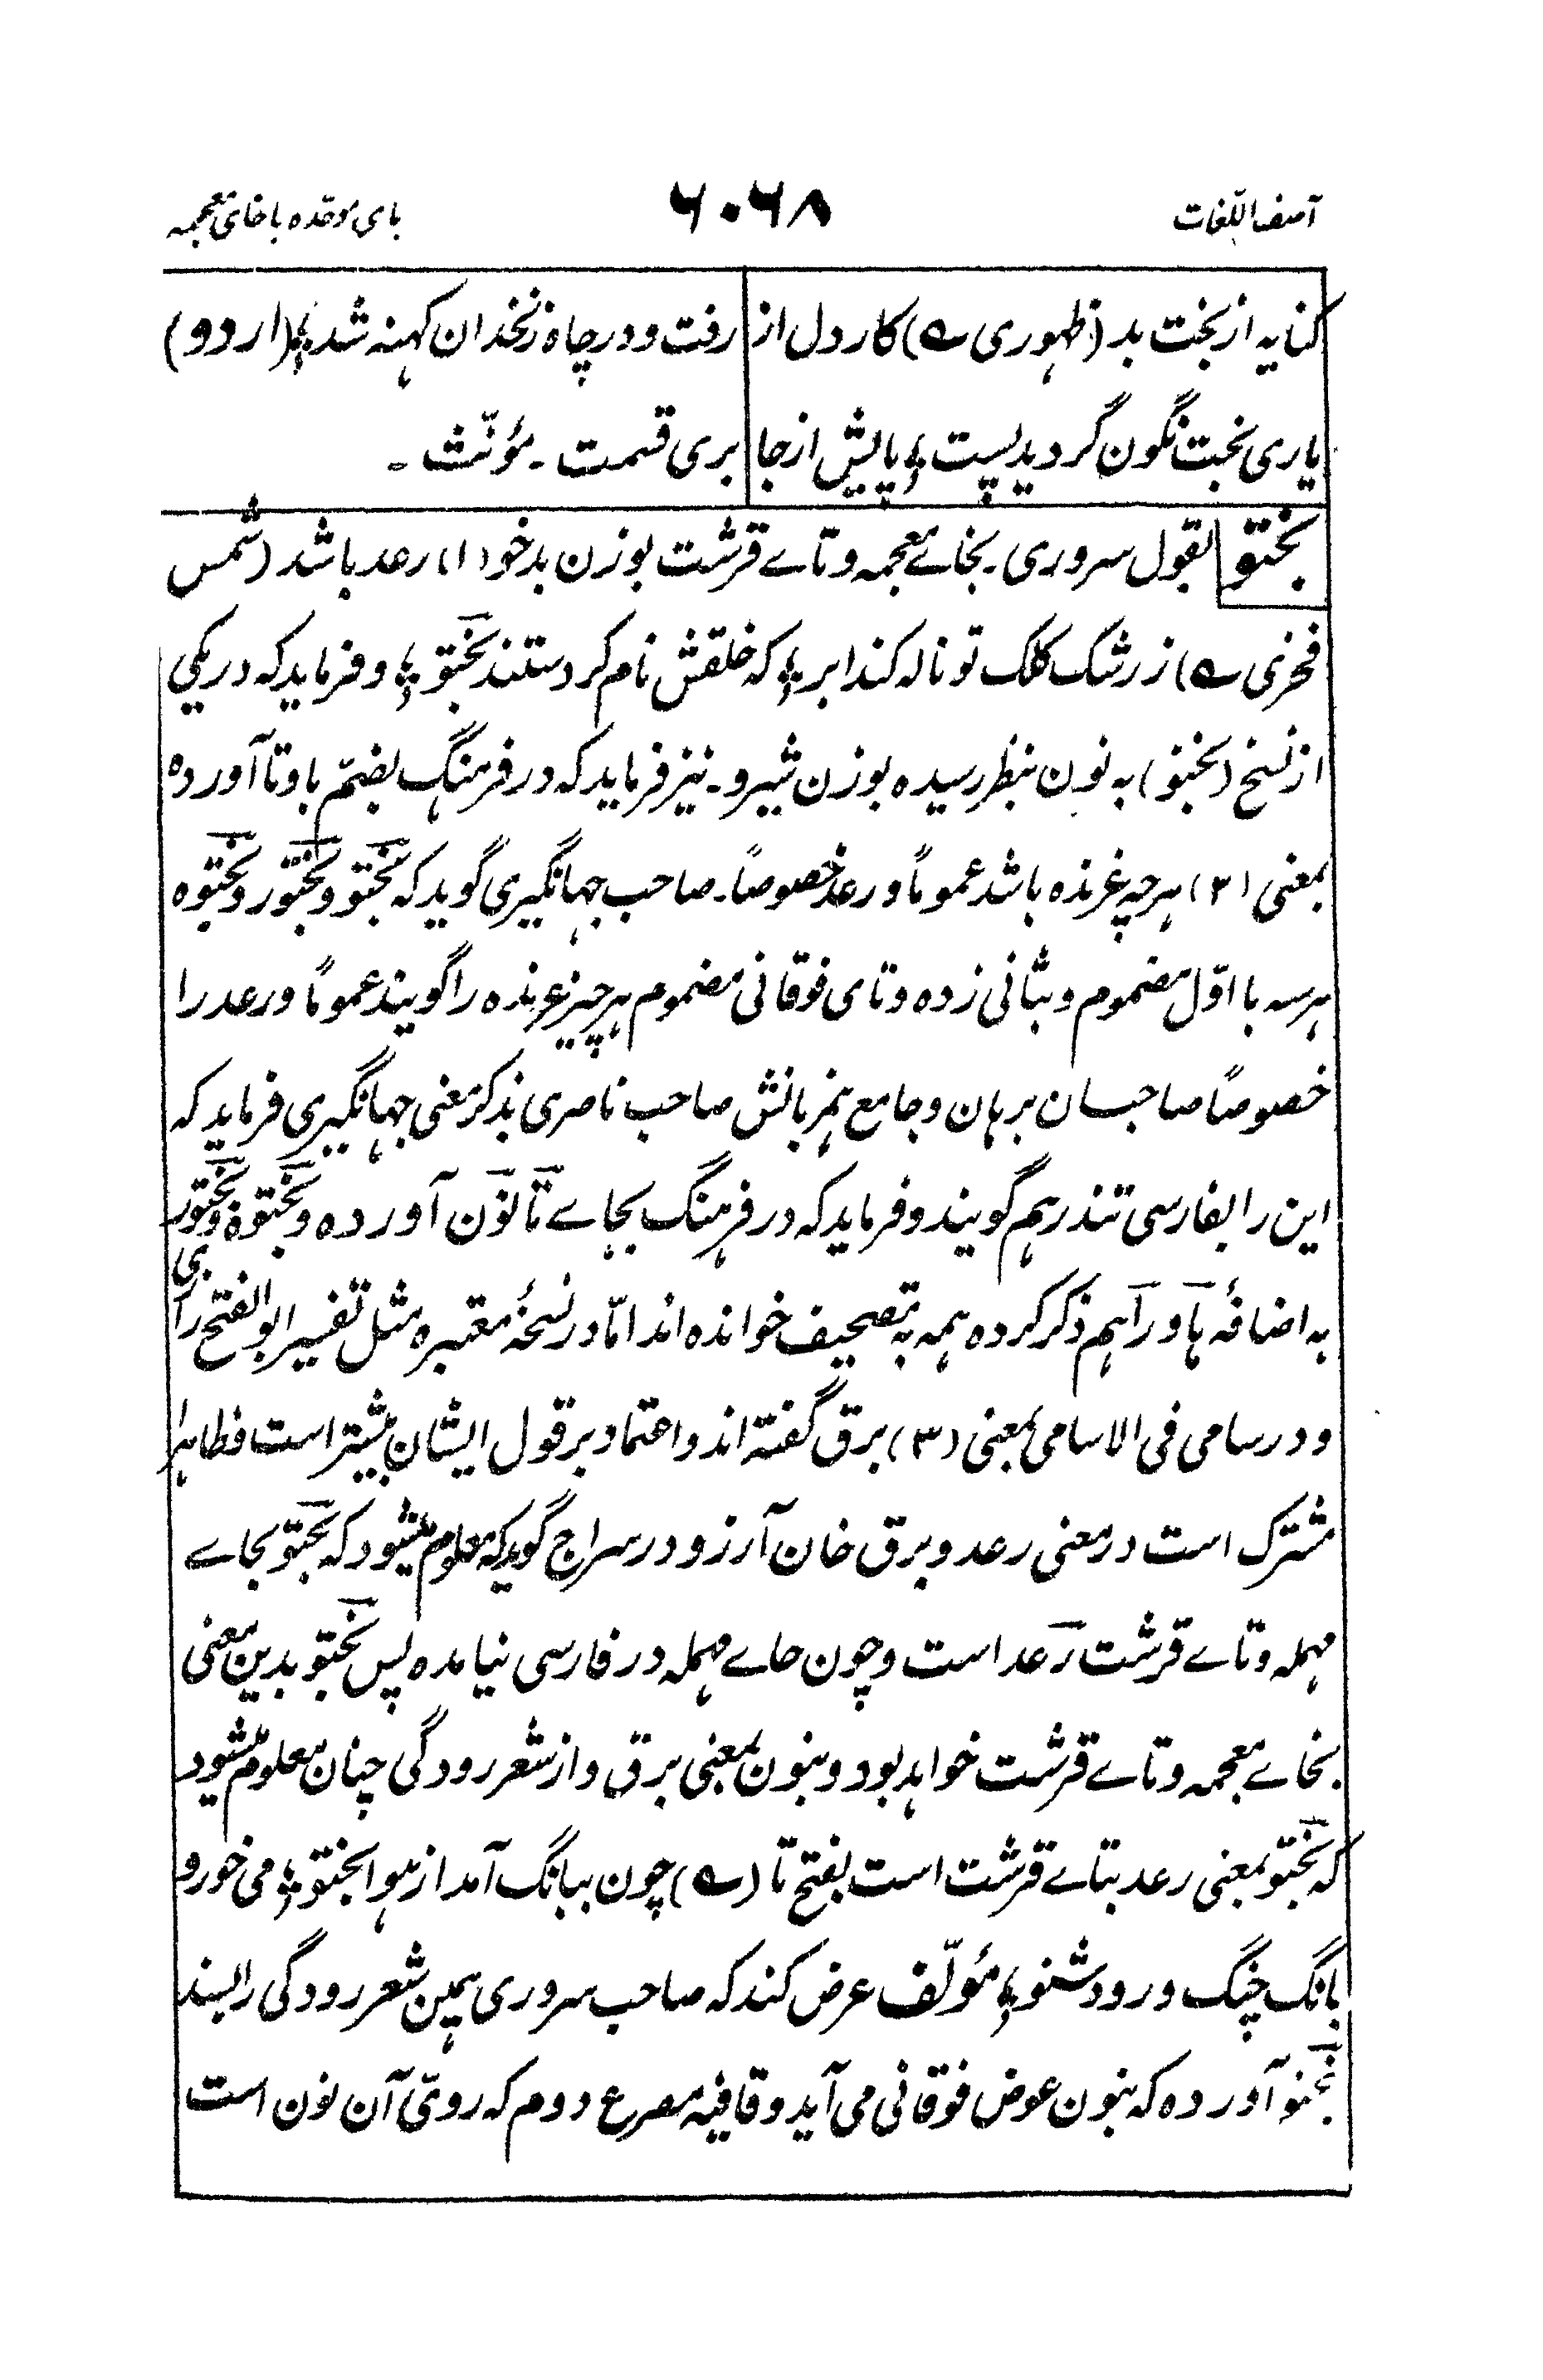 آصف اللّغات
۶۰۶۸
بای موحّده با خای معجمه
کنایہ از بخت بد (ظہوری ؎) کار دل از
یاری بخت نگون گردید پست ؛ پایش از جا
رفت و در چاہ زنخدان کہنہ شد ؛ (اردو)
بری قسمت ۔ مؤنّث ۔
بختو بقول سروری ۔ بخائے معجمہ و تائے قرشت بوزن بدخو (۱) رعد باشد (شمس
فخری ؎) ز رشک کلک تو نالہ کند ابر ؛ کہ خلقش نام کردستند بختو ؛ و فرماید کہ در یکی
از نسخ (بخنو) بہ نون بنظر رسیدہ بوزن شیرو ۔ نیز فرماید کہ در فرہنگ بضمّ با و تا آوردہ
بمعنی (۲) ہرچہ غرندہ باشد عموماً و رعد خصوصاً ۔ صاحب جہانگیری گوید کہ بختو و بختور و بختوہ
ہر سہ با اوّل مضموم و بثانی زدہ و تای فوقانی مضموم ہر چیز غرندہ را گویند عموماً و رعد را
خصوصاً صاحبان برہان و جامع ہمزبانش صاحب ناصری بذکر معنی جہانگیری فرماید کہ
این را بفارسی تندر ہم گویند و فرماید کہ در فرہنگ بجائے تا نون آوردہ و بختوہ و بختور
بہ اضافۂ ہا و را ہم ذکر کردہ ہمہ بہ تصحیف خواندہ اند امّا در نسخۂ معتبرہ مثل تفسیر ابوالفتح رازی
و در سامی فی الاسامی بمعنی (۳) برق گفتہ اند و اعتماد بر قول ایشان بیشتر است فظاہرا
مشترک است در معنی رعد و برق خان آرزو در سراج گوید کہ معلوم میشود کہ بحتو بحائے
مہملہ و تائے قرشت رعد است و چون حائے مہملہ در فارسی نیامدہ پس بختو بدین معنی
بخائے معجمہ و تائے قرشت خواہد بود و بنون بمعنی برق و از شعر رودگی چنان معلوم میشود
کہ بختو بمعنی رعد بتائے قرشت است بفتح تا (؎) چون ببانگ آمد از ہوا بختو ؛ می خور و
بانگ چنگ و رود شنو ؛ مؤلّف عرض کند کہ صاحب سروری ہمین شعر رودگی را بسند
بخنو آوردہ کہ بنون عوض فوقانی می آید و قافیہ مصرع دوم کہ رویّ آن نون است